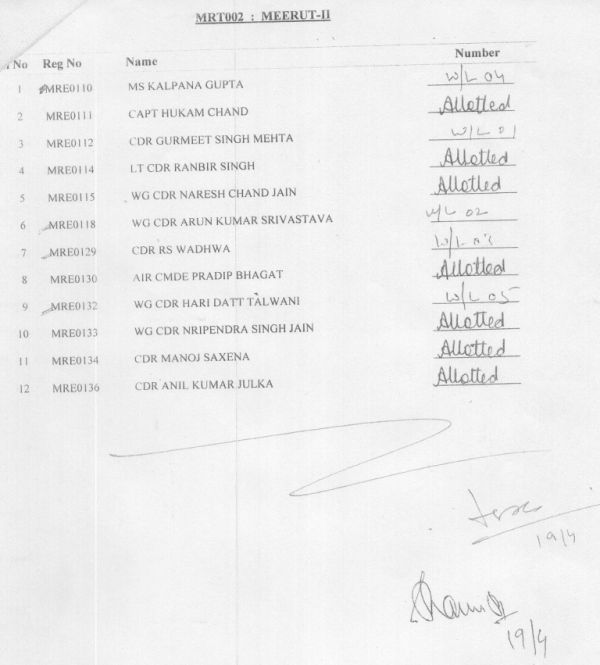 MRT002 : MEERUT-II
No Reg No Name Number
1 MRE0110 MS KALPANA GUPTA W/L 04
2 MRE0111 CAPT HUKAM CHAND Allotted
3 MRE0112 CDR GURMEET SINGH MEHTA W/L 01
4 MRE0114 LT CDR RANBIR SINGH Allotted
5 MRE0115 WG CDR NARESH CHAND JAIN Allotted
6 MRE0118 WG CDR ARUN KUMAR SRIVASTAVA W/L 02
7 MRE0129 CDR RS WADHWA W/L 03
8 MRE0130 AIR CMDE PRADIP BHAGAT Allotted
9 MRE0132 WG CDR HARI DATT TALWANI W/L 05
10 MRE0133 WG CDR NRIPENDRA SINGH JAIN Allotted
11 MRE0134 CDR MANOJ SAXENA Allotted
12 MRE0136 CDR ANIL KUMAR JULKA Allotted
19/4
19/4